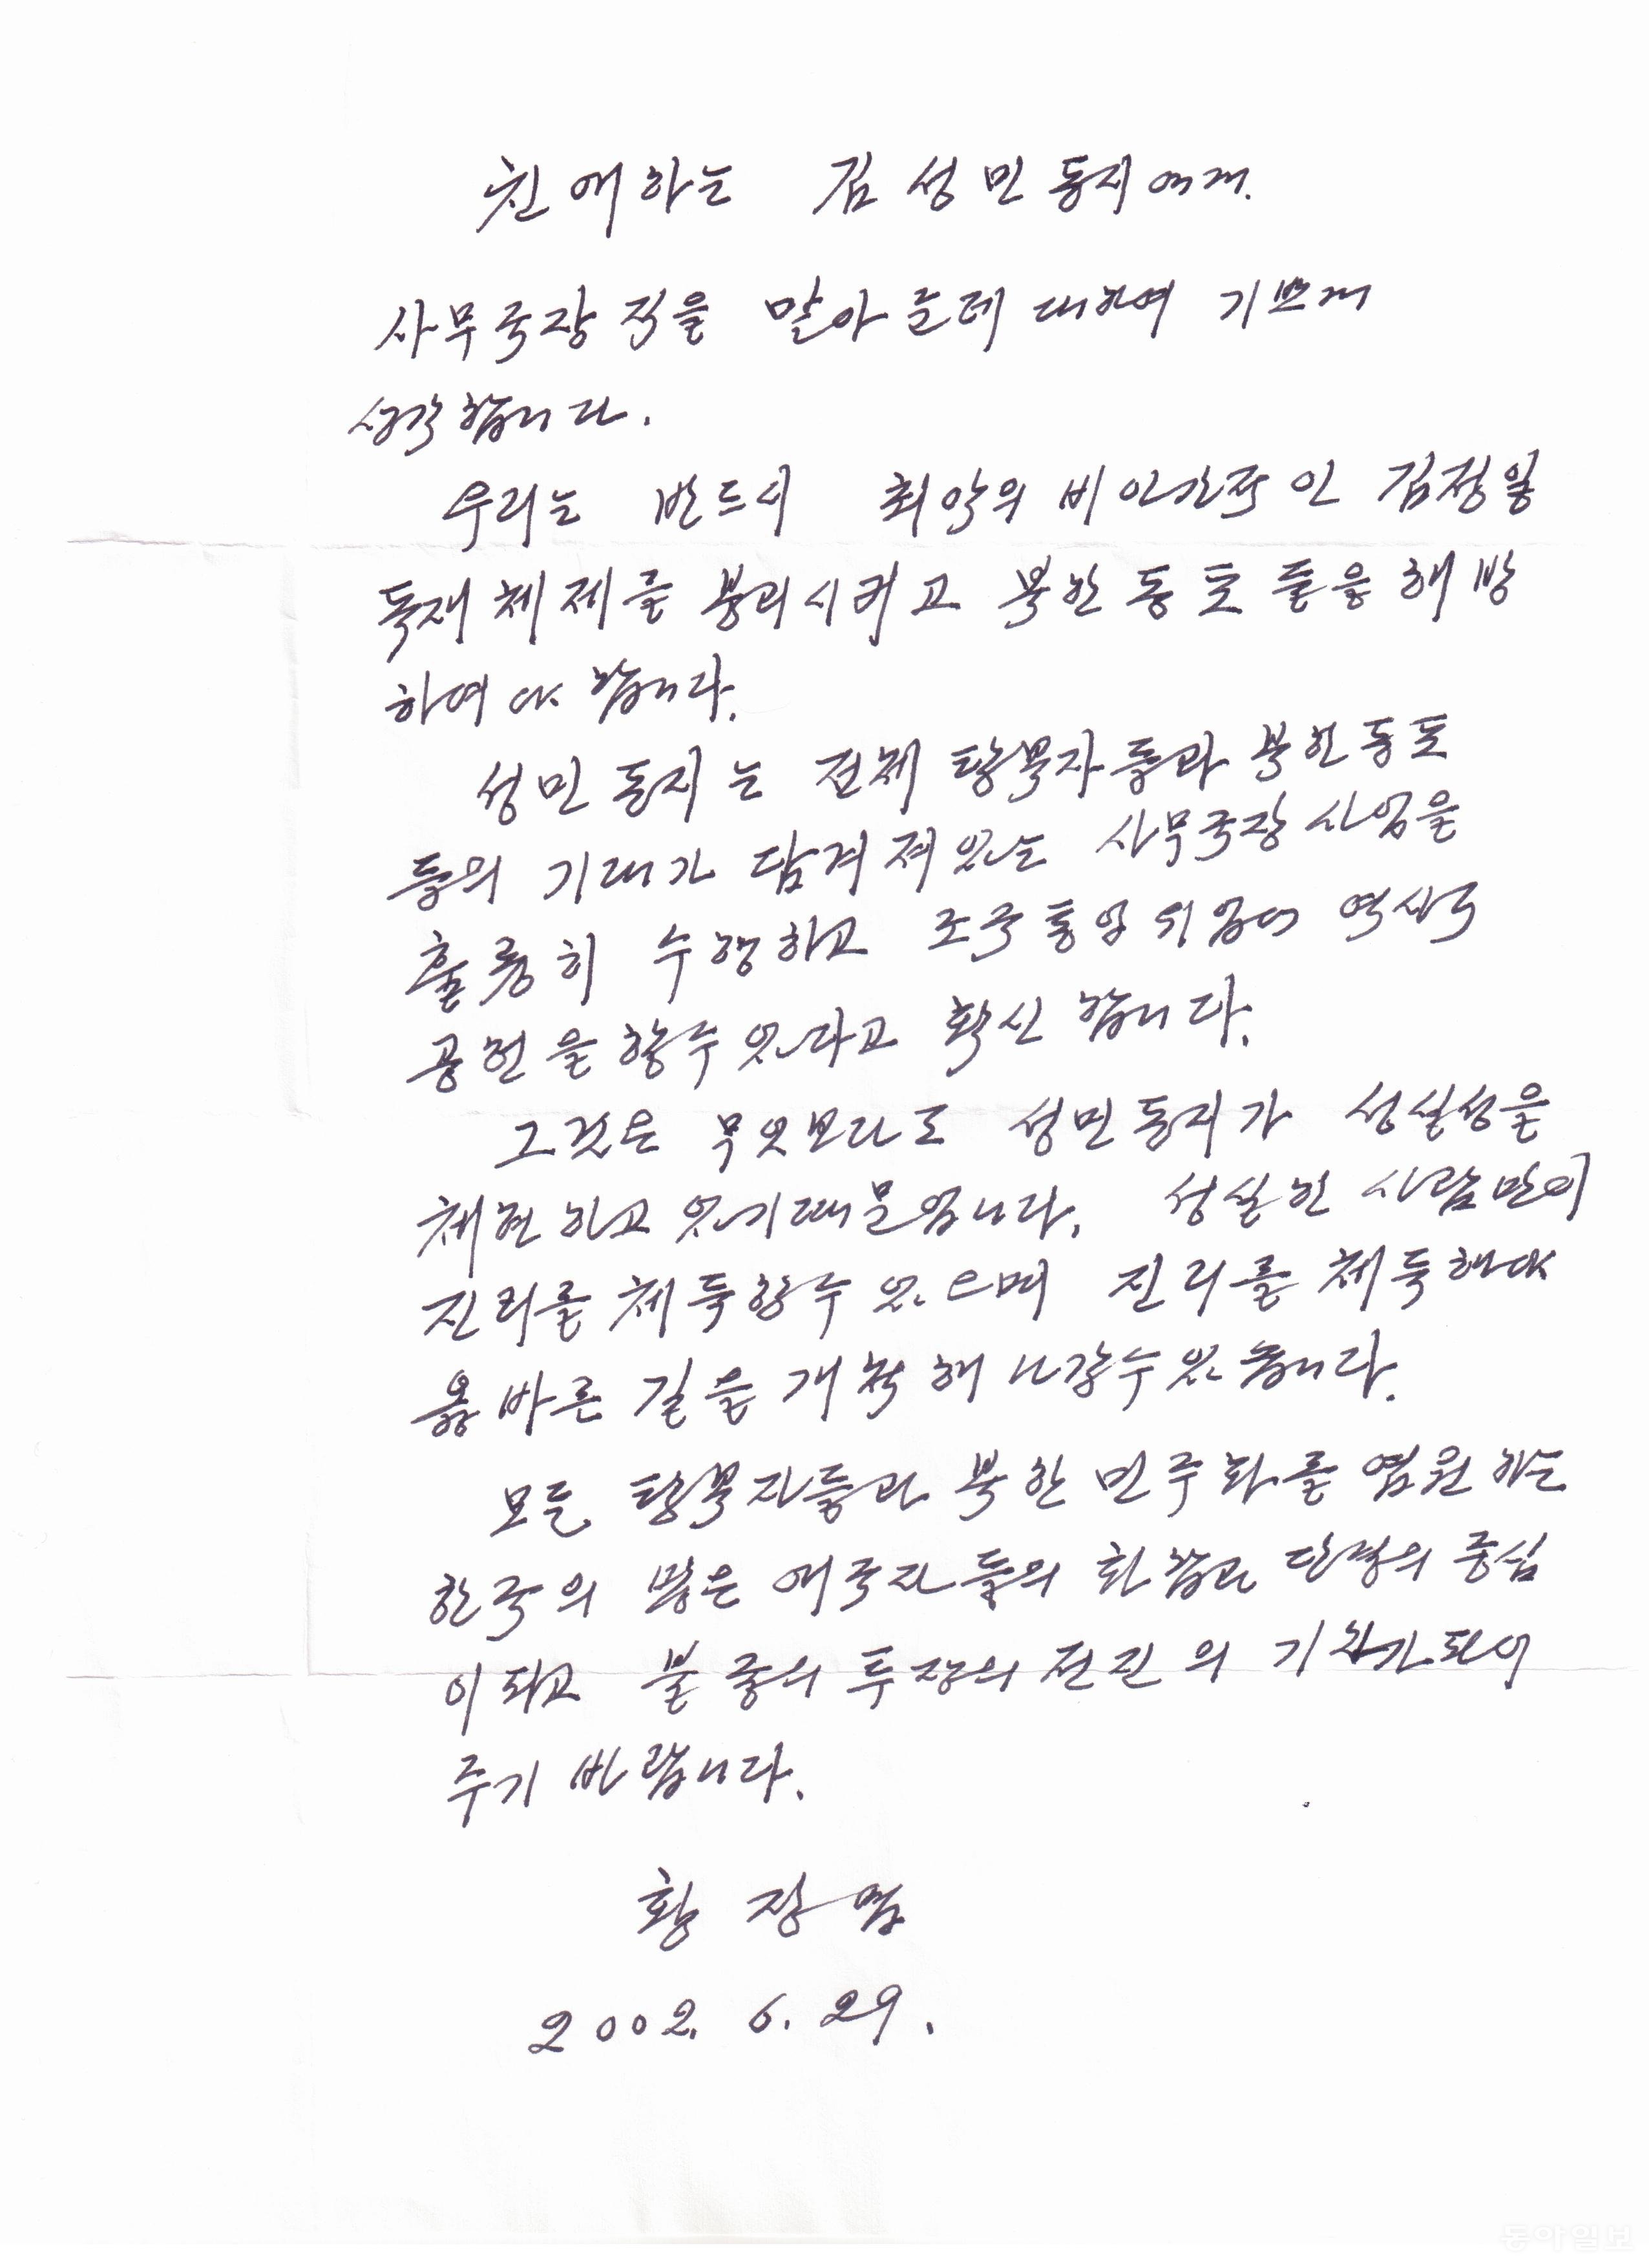 친애하는 김성민동지에게.
사무국장직을 맡아 준데 대하여 기쁘게
생각합니다.
우리는 반드시 최악의 비인간적인 김정일
독재체제를 붕괴시키고 북한동포들을 해방
하여야 합니다.
성민동지는 전체 탈북자들과 북한동포
들의 기대가 담겨져있는 사무국장사업을
훌륭히 수행하고 조국통일위업에
공헌을 할수 있다고 확신합니다.
그것은 무엇보다도 성민동지가 성실성을
체현하고 있기때문입니다. 성실한 사람만이
진리를 체득할수 있으며 진리를 체득해야
옳바른 길을 개척해 나갈수 있습니다.
모든 탈북자들과 북한민주화를 염원하는
한국의 많은 애국자들의 화합과 단결의 중심
이 되고 불굴의 투쟁의 전진의 기치가 되어
주기 바랍니다.
황장엽
2002. 6. 29.
동아일보